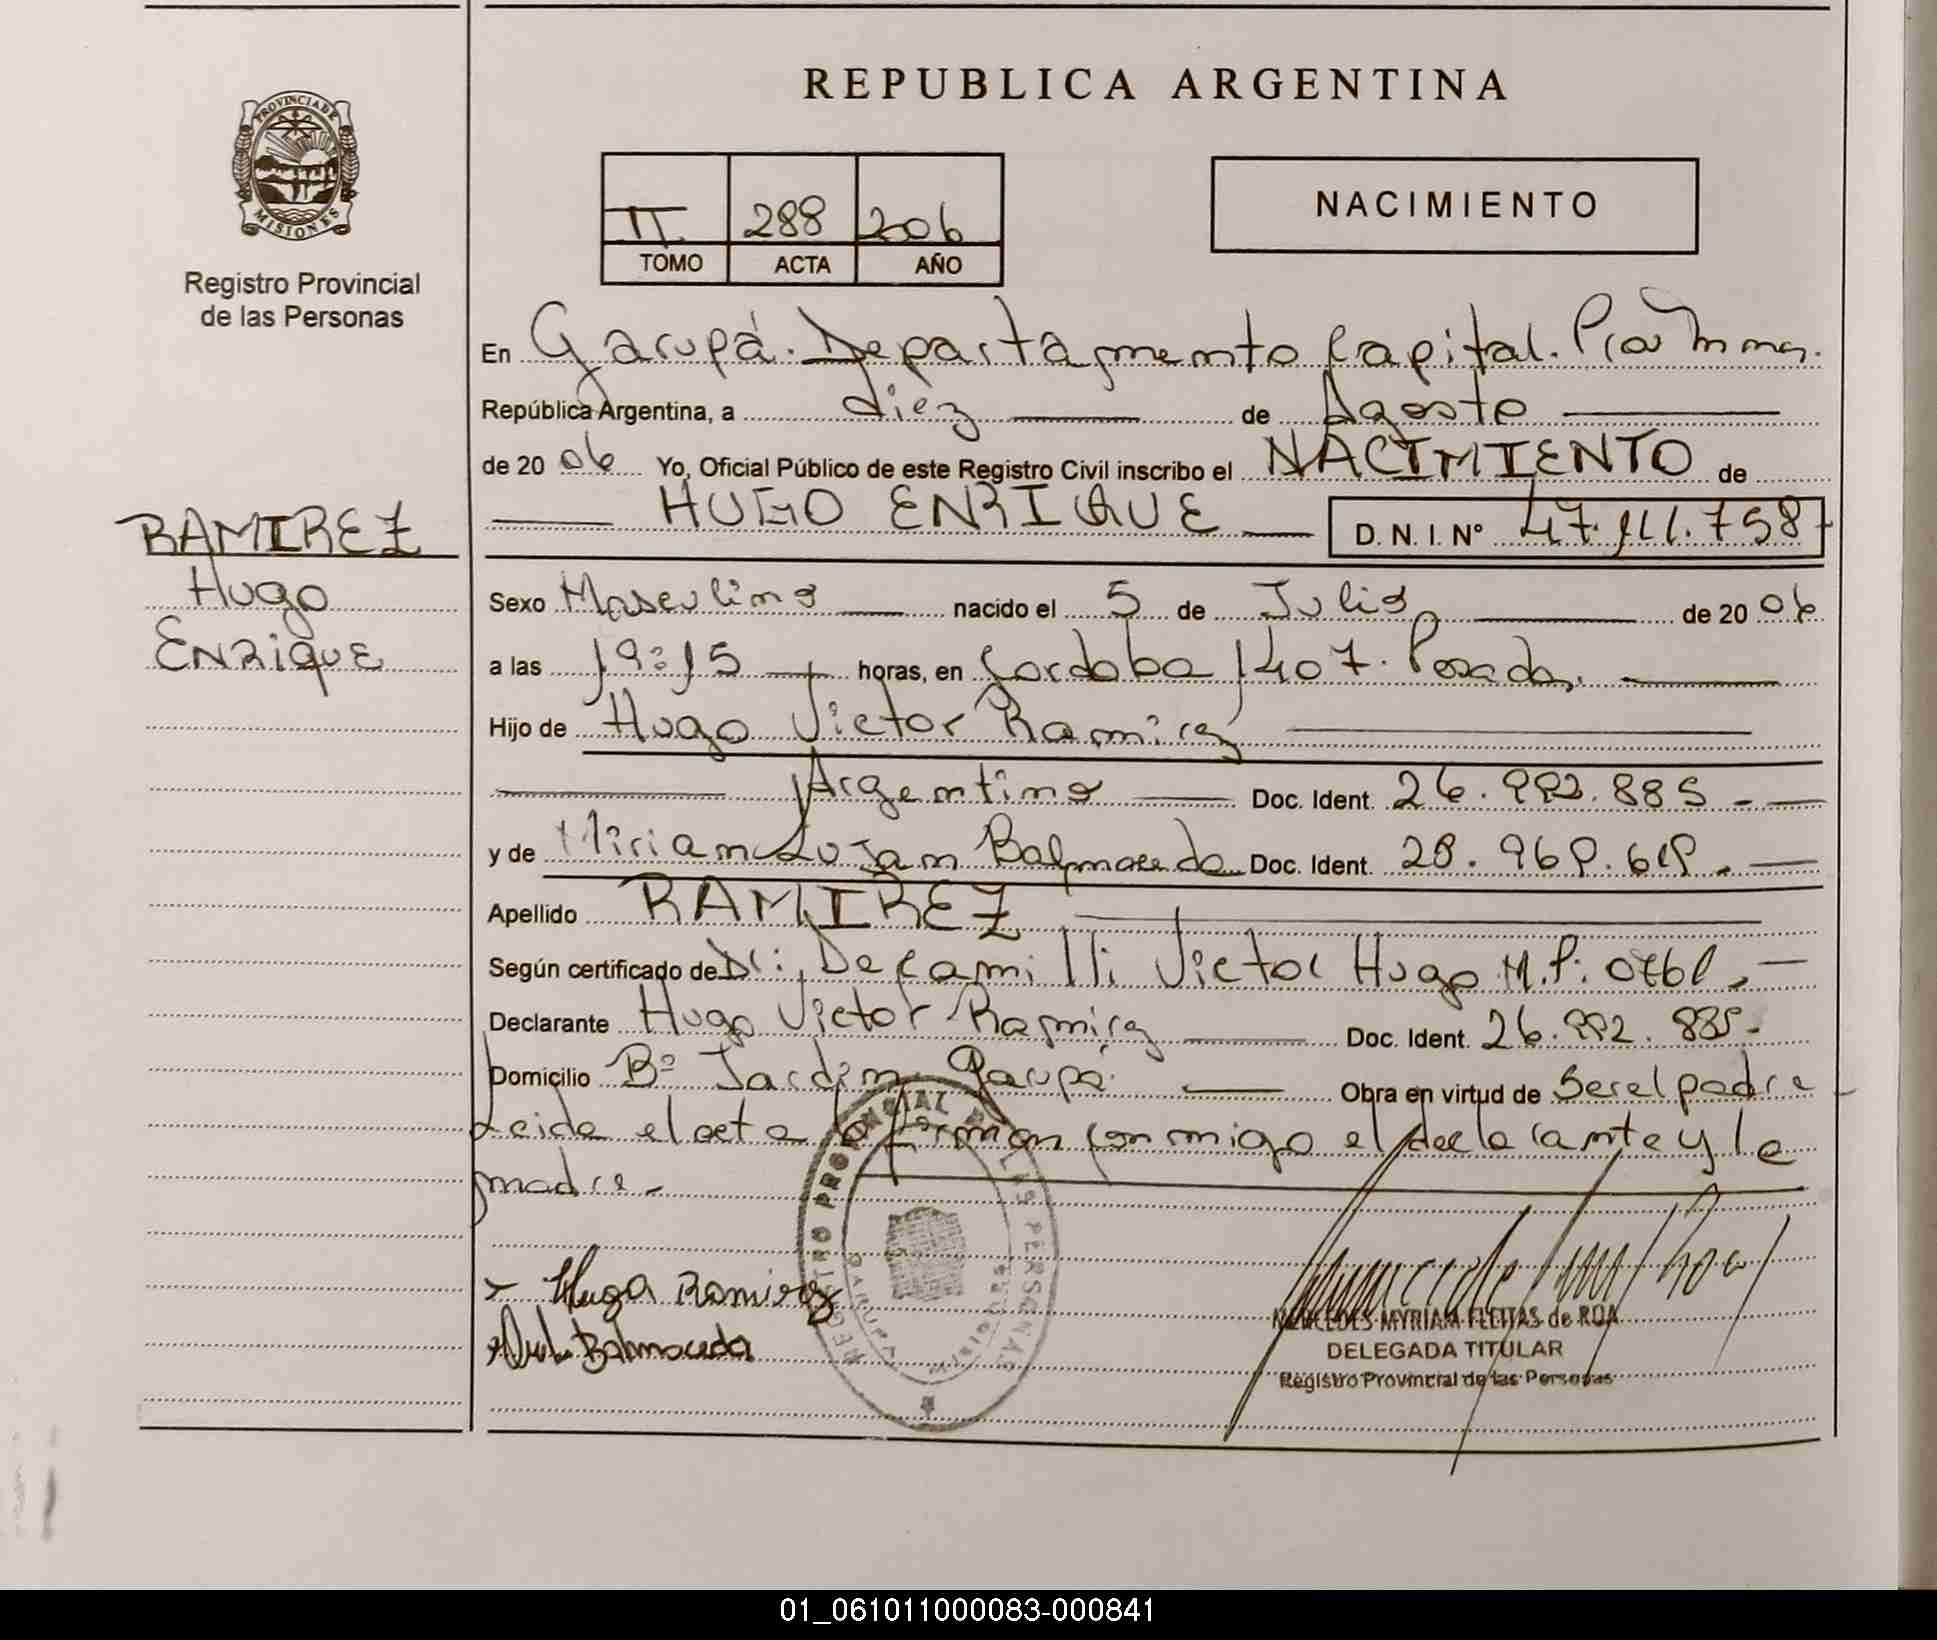 REPUBLICA ARGENTINA
PROVINCIA DE
MISIONES
Registro Provincial
de las Personas
II 288 2006
TOMO ACTA AÑO
NACIMIENTO
En Garupá. Departamento Capital.
República Argentina, a diez de Agosto
de 20 06 Yo, Oficial Público de este Registro Civil inscribo el NACIMIENTO de
HUGO ENRIQUE D. N. I. Nº 47.111.758
RAMIREZ
Hugo
Enrique
Sexo Masculino nacido el 5 de Julio de 20 06
a las 19:15 horas, en Cordoba 1407. Posadas.
Hijo de Hugo Victor Ramirez
Argentino Doc. Ident. 26.992.885.-
y de Mirian Lujan Balmaceda Doc. Ident. 28.969.619.
Apellido RAMIREZ
Según certificado de Dr: Decamilli Victor Hugo M.P: 0761.
Declarante Hugo Victor Ramirez Doc. Ident. 26.992.885.-
Domicilio Bº Jardin Garupá Obra en virtud de Ser el padre
Leida el acta la firman conmigo el declarante y la
madre.-
Hugo Ramirez
Balmaceda
REGISTRO PROVINCIAL DE LAS PERSONAS
GARUPA
MISIONES
MERCEDES MYRIAM FLEITAS de ROA
DELEGADA TITULAR
Registro Provincial de las Personas
01_061011000083-000841